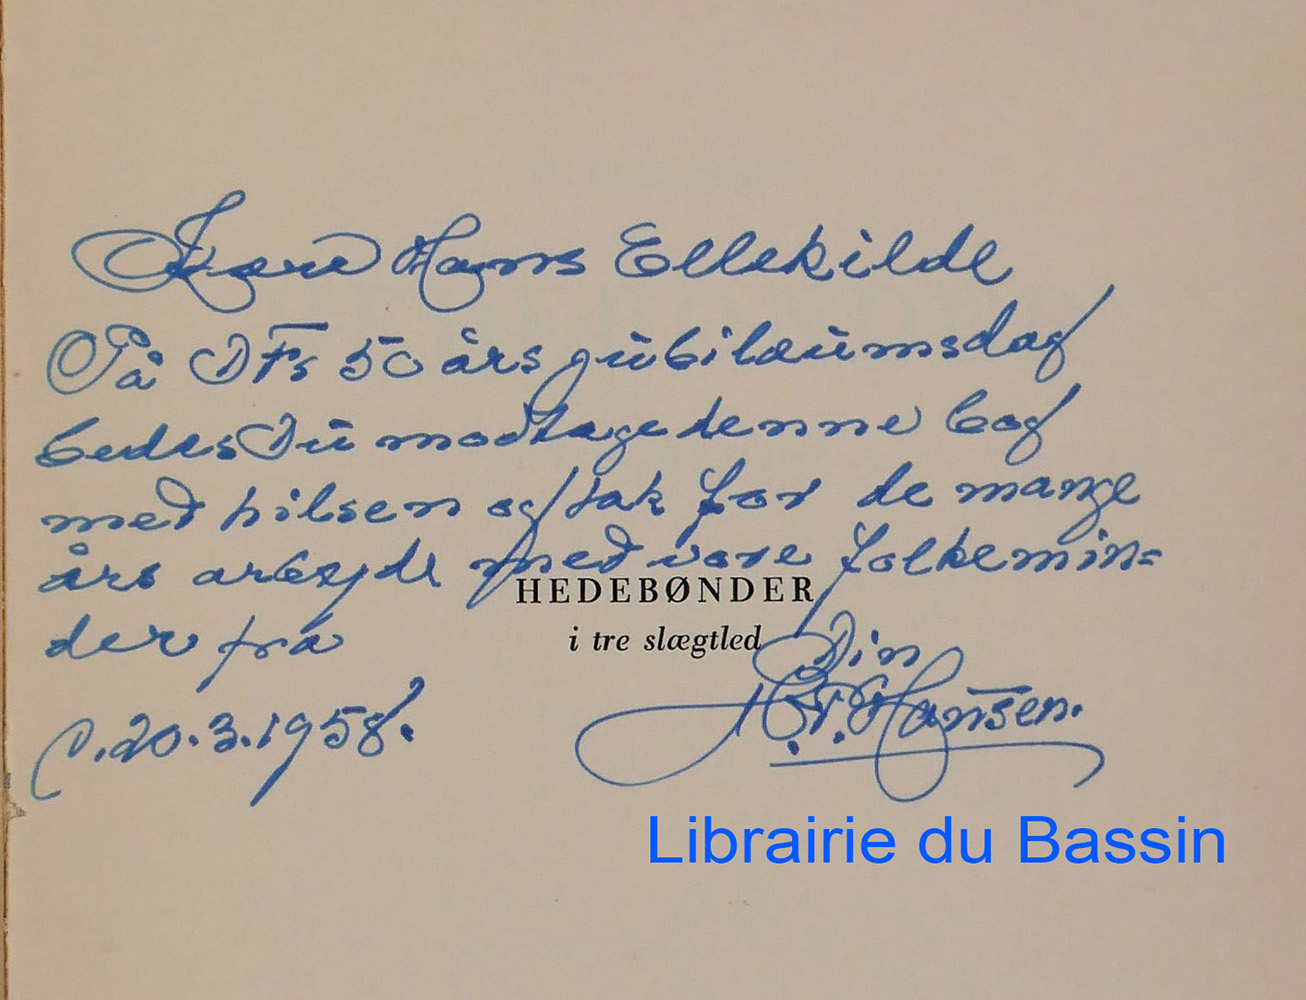 Kære Hans Ellekilde
På DFs 50 års jubilæumsdag
bedes Du modtage denne bog
med hilsen og tak for de mange
års arbejde med vore folkemin=
HEDEBØNDER
der fra
i tre slægtled
Din
H.P. Hansen.
d. 20.3.1958.
Librairie du Bassin